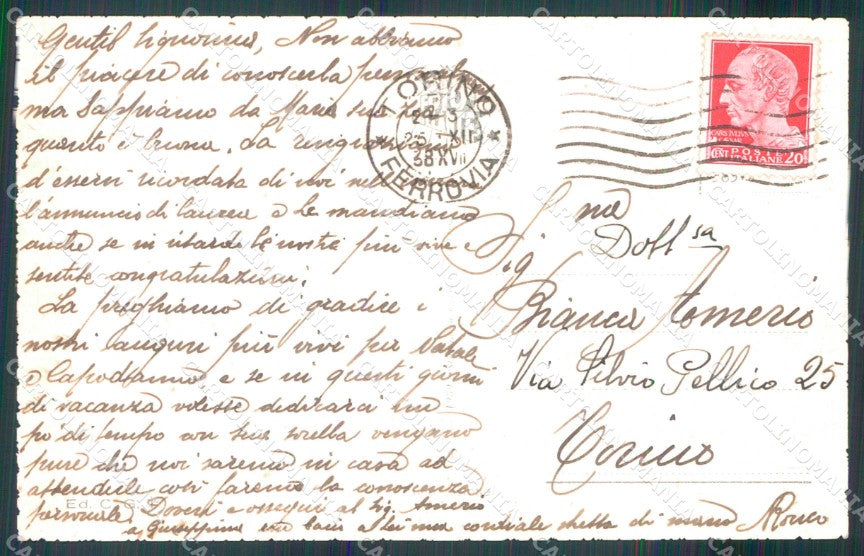 Gentil Signorina, Non abbiamo
il piacere di conoscerla
ma Sappiamo da Maria sua
quanto è buona. La ringraziamo
d'essersi ricordata di noi
l'annuncio di laurea e le mandiamo
anche se in ritardo le nostre più vive e
sentite congratulazioni.
La preghiamo di gradire i
nostri auguri più vivi per Natale
e Capodanno e se in questi giorni
di vacanza volesse dedicare un
po' di tempo con sua sorella vengano
pure che noi saremo in casa ad
attenderle così faremo la conoscenza
personale. Doveri e ossequi al Sig. Amerio
a Giuseppina e a lei una cordiale stretta di mano
Ed. C. G.
TORINO
FERROVIA
38 XVII
POSTE
CENT ITALIANE 20
Gent.ma
Sig
Dott.sa
Bianca Amerio
Via Silvio Pellico 25
Torino
CARTOLINOMANIA